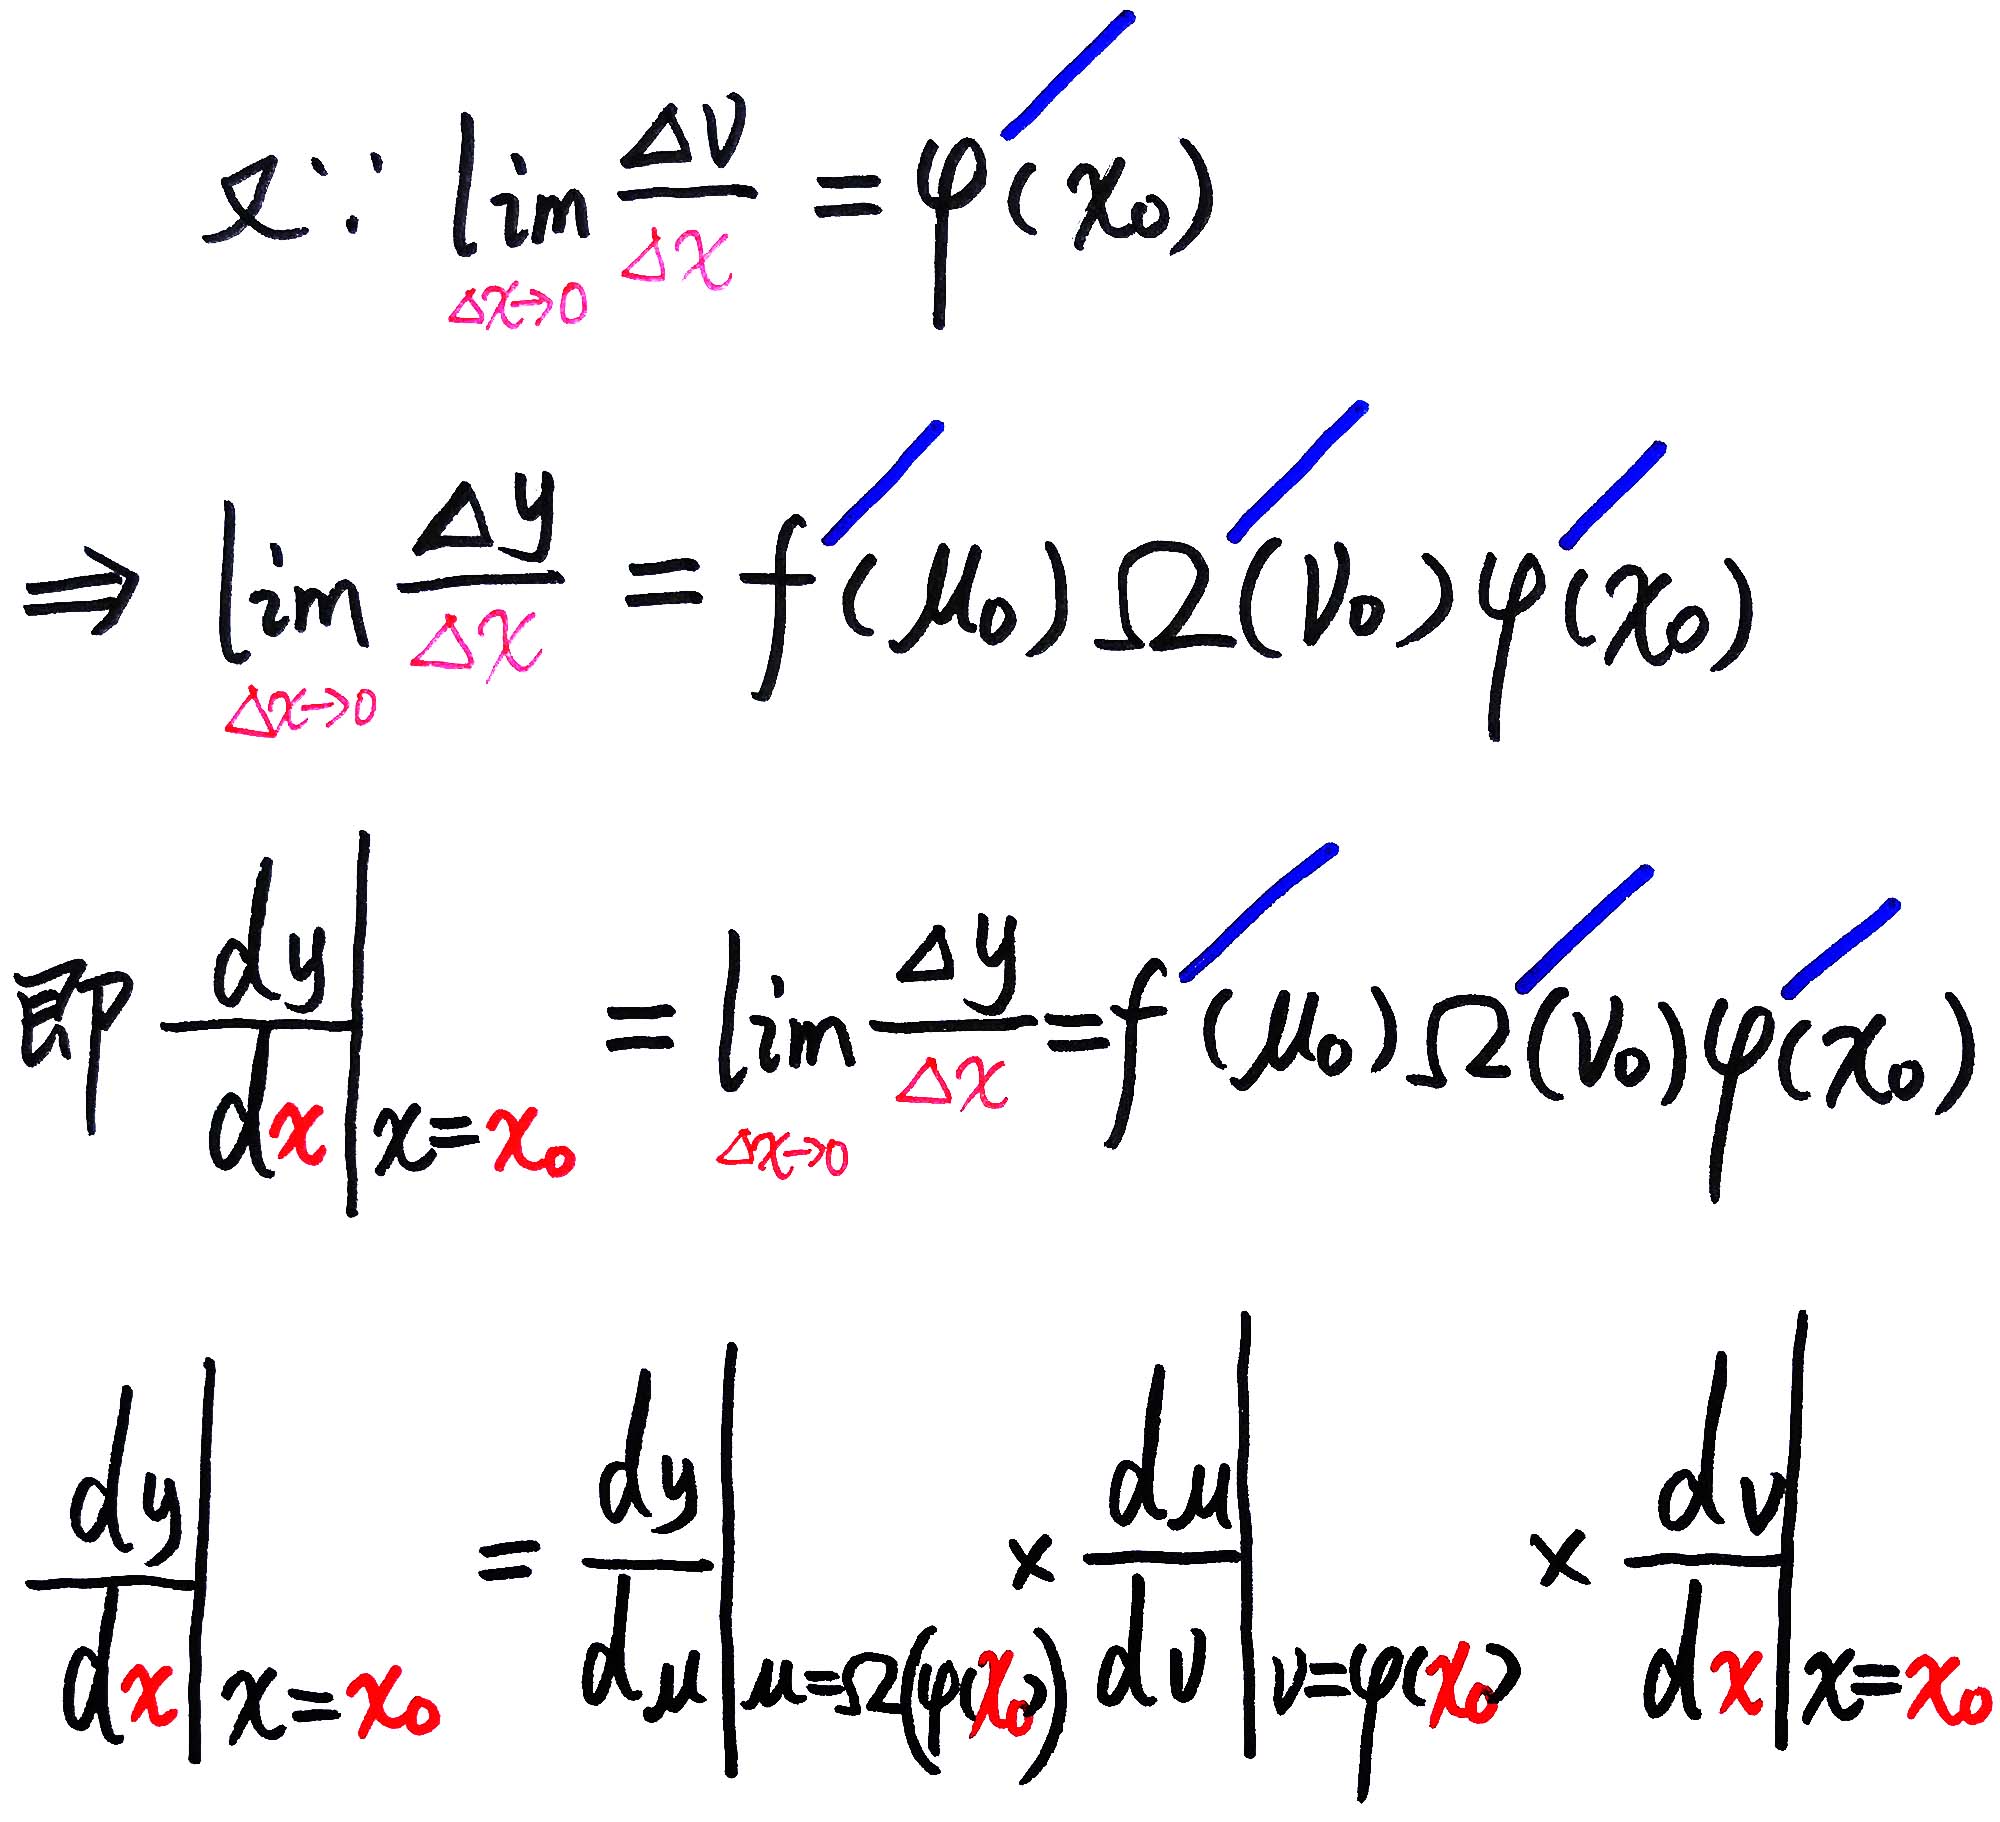 又∵ lim_{Δx→0} Δν/Δx = φ′(x₀)
⇒ lim_{Δx→0} Δy/Δx = f′(μ₀)Ω′(ν₀)φ′(x₀)
即 dy/dx|_{x=x₀} = lim_{Δx→0} Δy/Δx = f′(μ₀)Ω′(ν₀)φ′(x₀)
dy/dx|_{x=x₀} = dy/dμ|_{μ=Ω(φ(x₀))} × dμ/dν|_{ν=φ(x₀)} × dν/dx|_{x=x₀}